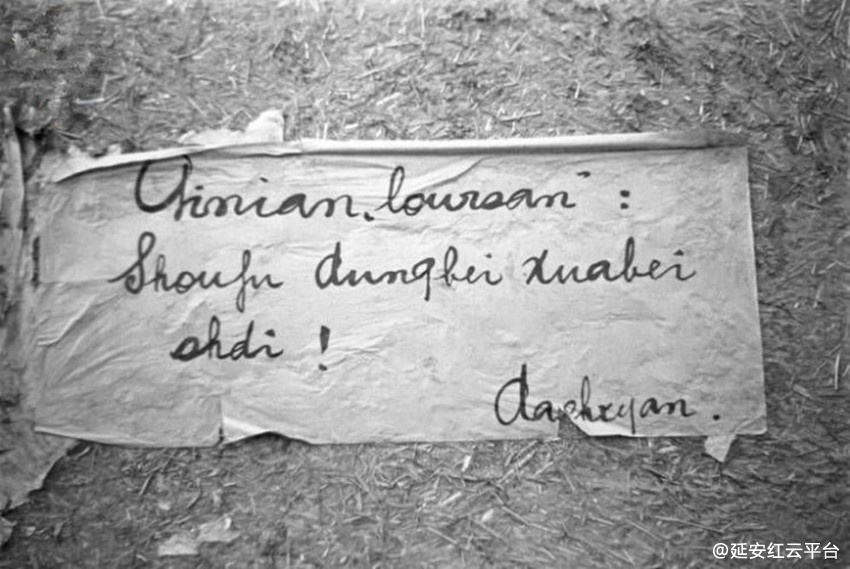 Ginian „loursan" :
Shoufu dungbei xuabei
shdi !
Dashxyan.
@延安红云平台